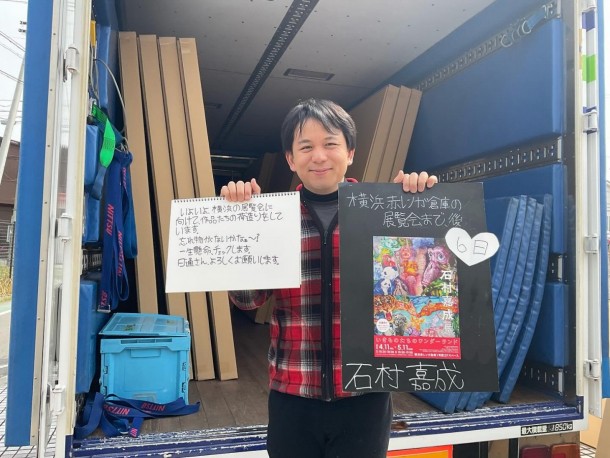 いよいよ、横浜の展覧会に
向けて、作品たちの荷造りをして
います。
忘れ物がないかなぁ〜?
一生懸命、チェックします。
日通さん、よろしくお願いします。
横浜赤レンガ倉庫の
展覧会まで、後
6日
石村嘉成
いきものたちのワンダーランド
4.11 5.11
石村嘉成
NITTSU
NITTSU
最大積載量 1850kg